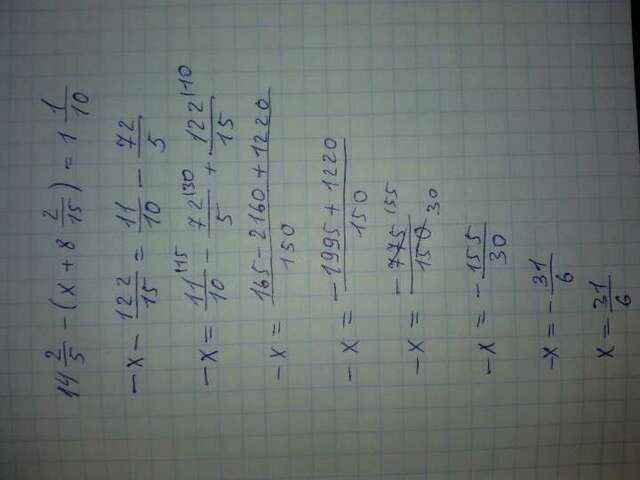 14 2/5 - (x + 8 2/15) = 1 1/10
-x - 122/15 = 11/10 - 72/5
-x = 11/10 |15 - 72/5 |30 + 122/15 |10
-x = (165 - 2160 + 1220)/150
-x = (-1995 + 1220)/150
-x = -775/150 155/30
-x = -155/30
-x = -31/6
x = 31/6